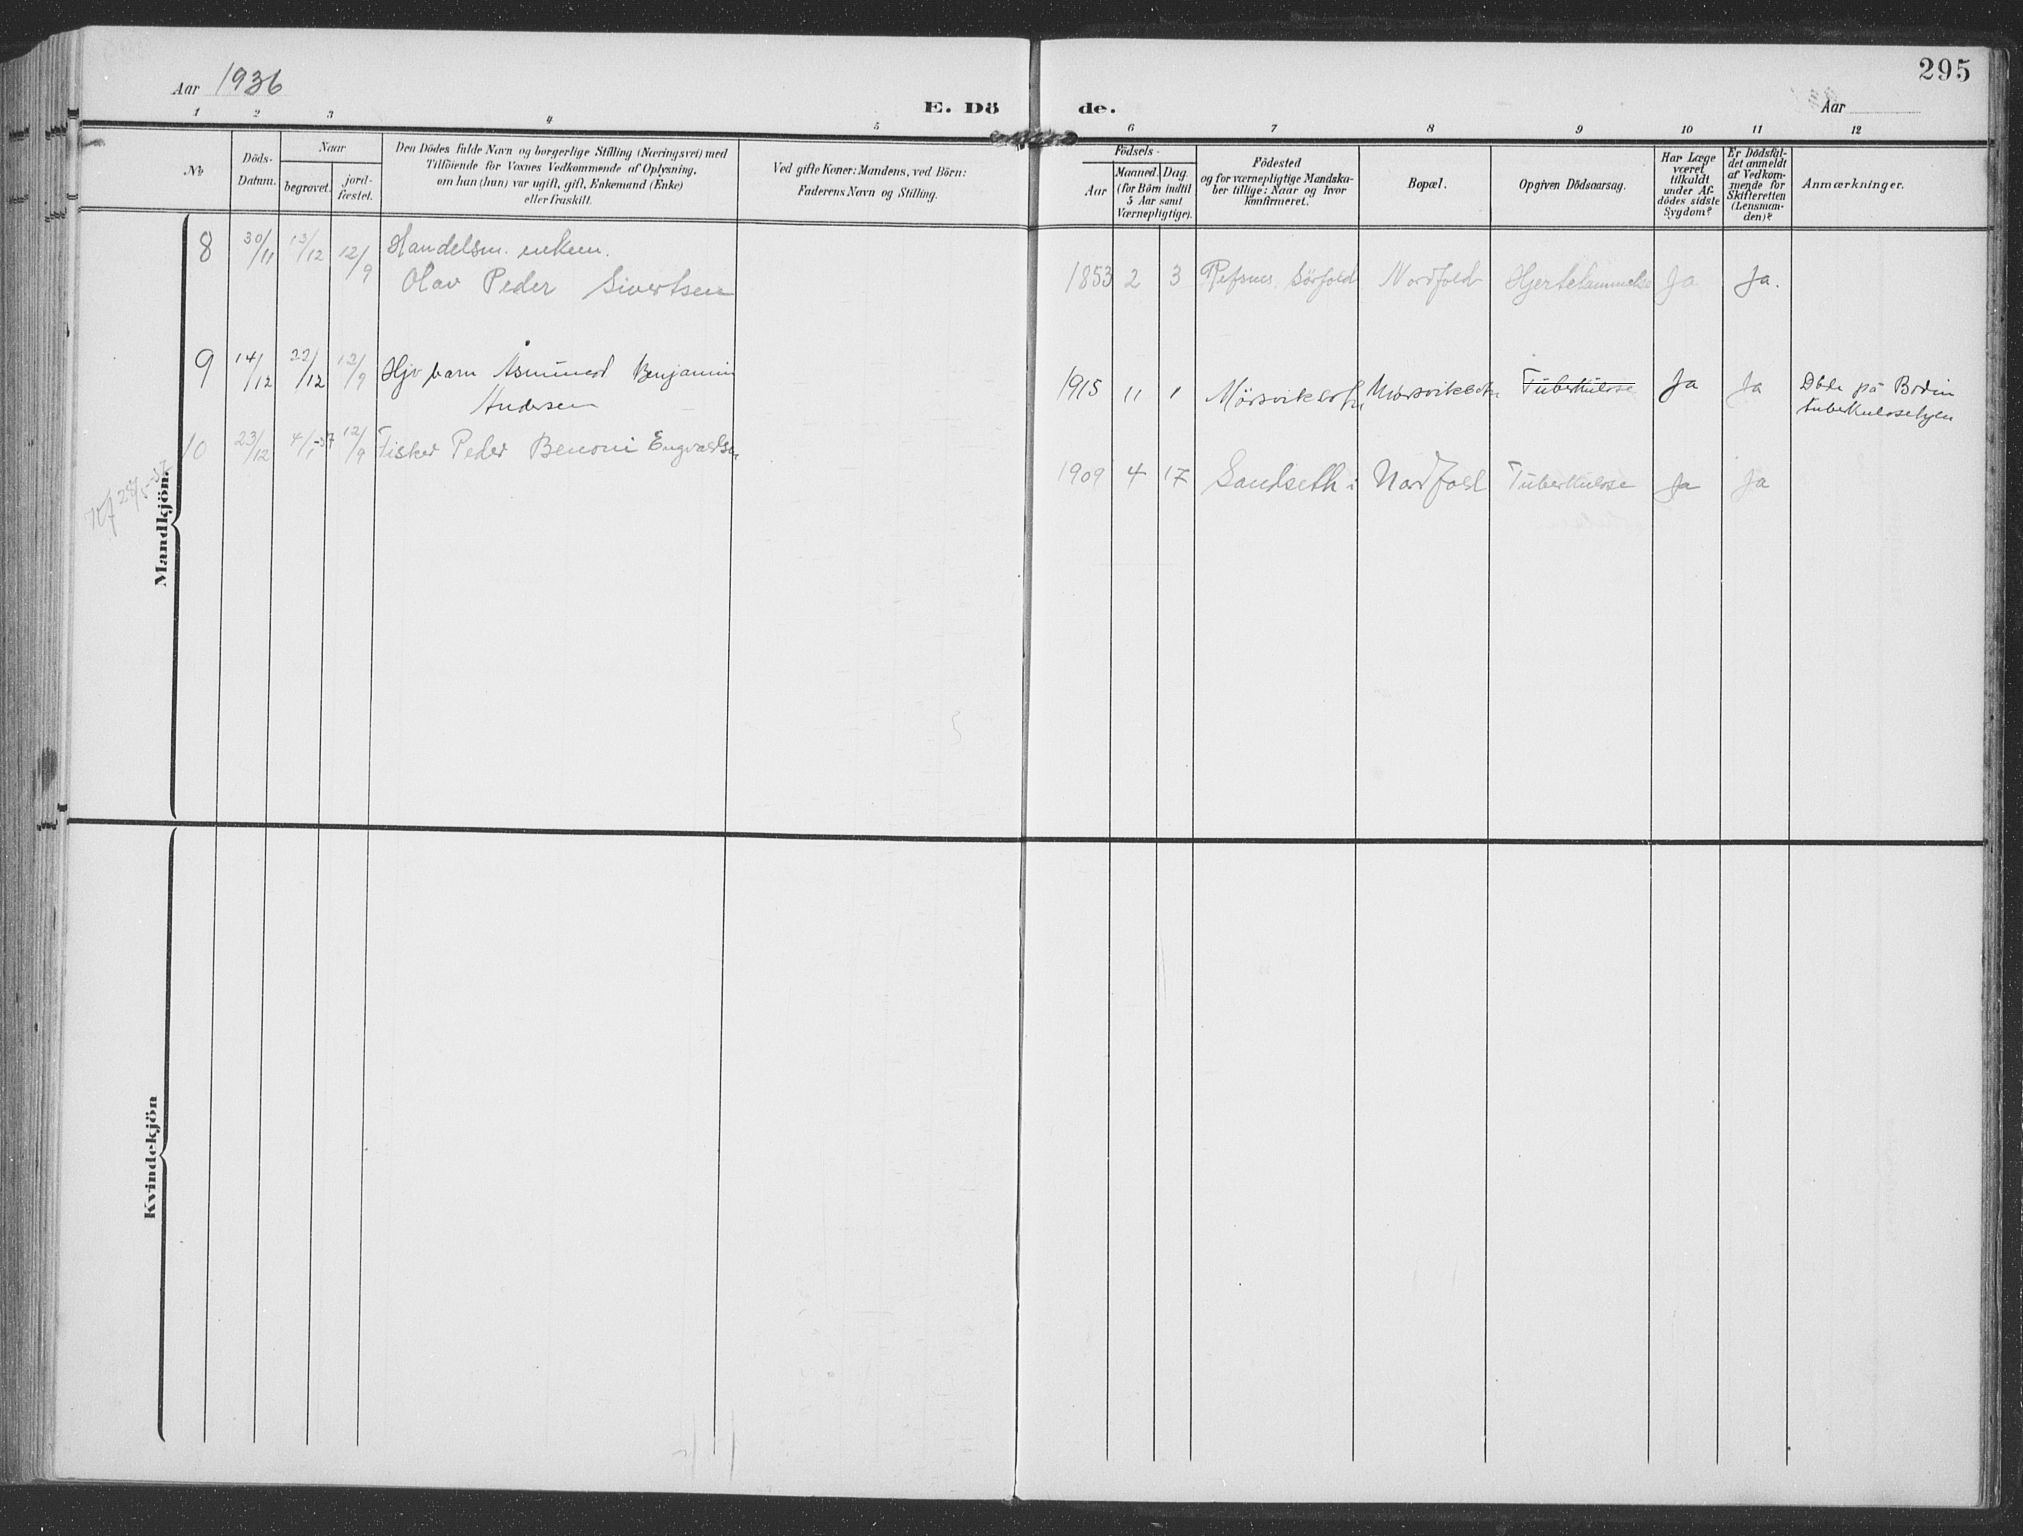 295
Aar 1936
E. Dö de.
Aar
1 2 3 4 5 6 7 8 9 10 11 12
No
Döds-
Datum.
Naar
begravet.
jord-
fæstet.
Den Dödes fulde Navn og borgerlige Stilling (Næringsvei) med
Tilföiende for Voxnes Vedkommende af Oplysning,
om han (hun) var ugift, gift, Enkemand (Enke)
eller fraskilt.
Ved gifte Koner: Mandens, ved Börn:
Faderens Navn og Stilling.
Födsels-
Aar
Maaned. Dag.
(for Börn indtil
5 Aar samt
Værnepligtige).
Födested
og for værnepligtige Mandska-
ber tillige: Naar og hvor
konfirmeret.
Bopæl.
Opgiven Dödsaarsag.
Har Læge
været
tilkaldt
under Af-
dödes sidste
Sygdom?
Er Dödsfal-
det anmeldt
af Vedkom-
mende for
Skifteretten
(Lensman-
den)?
Anmærkninger.
8 30/11 13/12 12/9 Handelsm. enkem.
Olav Peder Sivertsen 1853 2 3 Refsnes, Sørfold Nordfold Hjertelammelse Ja Ja.
9 14/12 22/12 12/9 Hjv barn Åsmund Benjamin
Andersen 1915 11 1 Tuberkulose Ja Ja Døde på Bodin
10 23/12 4/1-37 12/9 Fisker Peder Benoni Engvaldsen
1909 4 17 Sandseth i Nordfold Tuberkulose Ja Ja
Mandkjön.
Kvindekjön